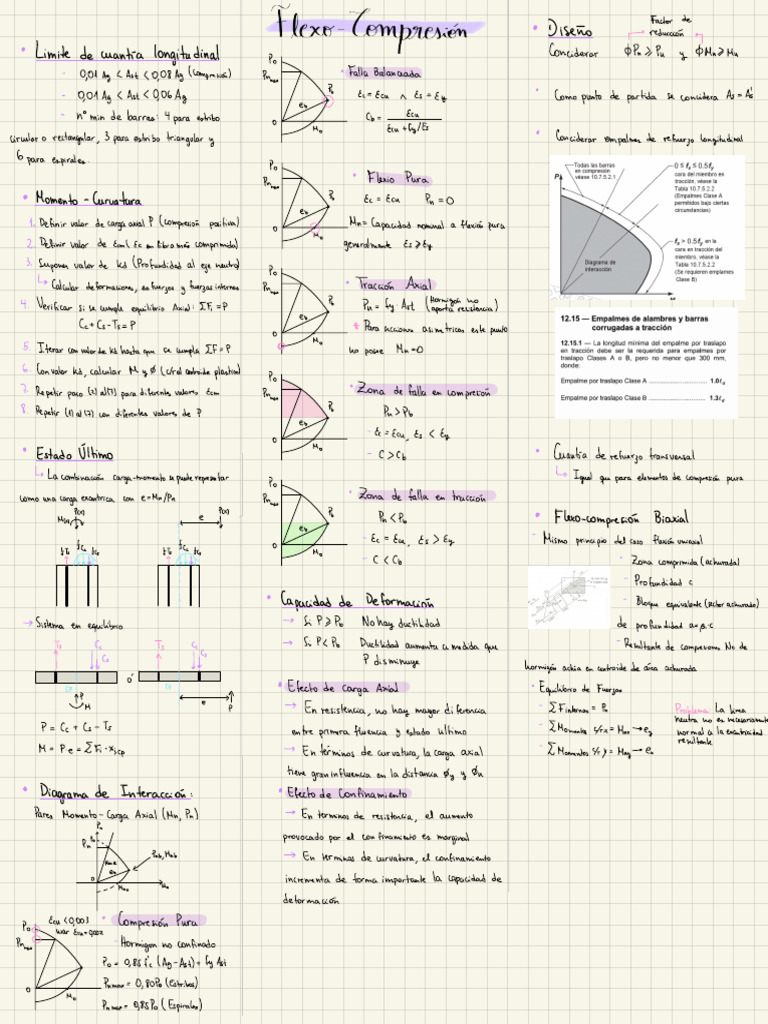 Flexo-Compresión
• Limite de cuantía longitudinal
- 0,01 Ag < Ast < 0,08 Ag (Compresión)
- 0,01 Ag < Ast < 0,06 Ag
- nº min de barras: 4 para estribo
circular o rectangular, 3 para estribo triangular y
6 para espirales.
• Momento - Curvatura
1. Definir valor de carga axial P (compresión positiva)
2. Definir valor de εcm (εc en fibra más comprimida)
3. Suponer valor de kd (Profundidad al eje neutro)
↳ Calcular deformaciones, esfuerzos y fuerzas internas
4. Verificar si se cumple equilibrio Axial: ΣFi = P
Cc + Cs - Ts = P
5. Iterar con valor de kd hasta que se cumpla ΣF = P
6. Con valor kd, calcular M y Ø (c/r al centroide plastico)
7. Repetir paso (2) al (7) para diferentes εcm
8. Repetir (1) al (7) con diferentes valores de P
• Estado Último
↳ La combinación carga-momento se puede representar
como una carga excentrica con e = Mn/Pn
P(x)
M(x)
e
P(x)
→ Sistema en equilibrio
Ts
Cc
Cs
Ts
Cc
Cs
CP
o'
P
M
e
P
P = Cc + Cs - Ts
M = P e = ΣFi · xi,cp
• Diagrama de Interacción:
Pares Momento - Carga Axial (Mn, Pn)
Po
Pn
Pnb, Mnb
eb
Mno
Mn
εcu < 0,003
usar εcu = 0,002
Po
Pnmax
Mo
• Compresión Pura
- Hormigon no confinado
Po = 0,85 f'c (Ag - Ast) + fy Ast
Pnmax = 0,80 Po (Estribos)
Pnmax = 0,85 Po (Espirales)
Po
Pnmax
Pb
eb
Mo
• Falla Balanceada
εc = εcu ∧ εs = εy
Cb = εcu / (εcu + fy/Es)
Po
Pnmax
Pb
eb
Mo
• Flexio Pura
εc = εcu Pn = 0
Mn = Capacidad nominal a flexión pura
generalmente εs ≥ εy
Po
Pnmax
Pb
eb
Mo
• Tracción Axial
Pn = fy · Ast (Hormigón no aporta resistencia)
* Para secciones asimetricas este punto
no posee Mn = 0
Po
Pnmax
Pb
eb
Mo
• Zona de falla en compresión
Pn > Pb
- εc = εcu, εs < εy
- C > Cb
Po
Pnmax
Pb
eb
Mo
• Zona de falla en tracción
Pn < Pb
- εc = εcu, εs > εy
- C < Cb
• Capacidad de Deformación
→ Si P ≥ Pb No hay ductilidad
→ Si P < Pb Ductilidad aumenta a medida que
P disminuye
• Efecto de Carga Axial
→ En resistencia, no hay mayor diferencia
entre primera fluencia y estado ultimo
→ En términos de curvatura, la carga axial
tiene gran influencia en la distancia Øy y Øu
• Efecto de Confinamiento
→ En terminos de resistencia, el aumento
provocado por el confinamiento es marginal
→ En terminos de curvatura, el confinamiento
incrementa de forma importante la capacidad de
deformación
• Diseño
Factor de
reducción
Considerar ØPn ≥ Pu y ØMn ≥ Mu
• Como punto de partida se considera As = A's
• Considerar empalmes de refuerzo longitudinal
Todas las barras
en compresión
véase 10.7.5.2.1
Pn
0 ≤ fs ≤ 0.5fy
cara del miembro en
tracción, véase la
Tabla 10.7.5.2.2
(Empalmes Clase A
permitidos bajo ciertas
circunstancias)
fs > 0.5fy en la
cara en tracción del
miembro, véase la
Tabla 10.7.5.2.2
(Se requieren emplames
Clase B)
Diagrama de
interacción
12.15 — Empalmes de alambres y barras
corrugadas a tracción
12.15.1 — La longitud mínima del empalme por traslapo
en tracción debe ser la requerida para empalmes por
traslapo Clases A o B, pero no menor que 300 mm,
donde:
Empalme por traslapo Clase A ........................ 1.0ℓd
Empalme por traslapo Clase B ........................ 1.3ℓd
• Cuantía de refuerzo transversal
↳ Igual que para elementos de compresión pura
• Flexo-compresión Biaxial
- Mismo principio del caso flexión uniaxial
- Zona comprimida (achurada)
- Profundidad c
- Bloque equivalente (sector achurado)
de profundidad a = β₁·c
- Resultante de compresiones No de
hormigón actúa en centroide de área achurada
• Equilibrio de Fuerzas
- ΣFinternas = Pn
- ΣMomentos c/r x = Mnx → ey
- ΣMomentos c/r y = Mny → ex
Problema: La linea
neutra no es necesariamente
normal a la excentricidad
resultante